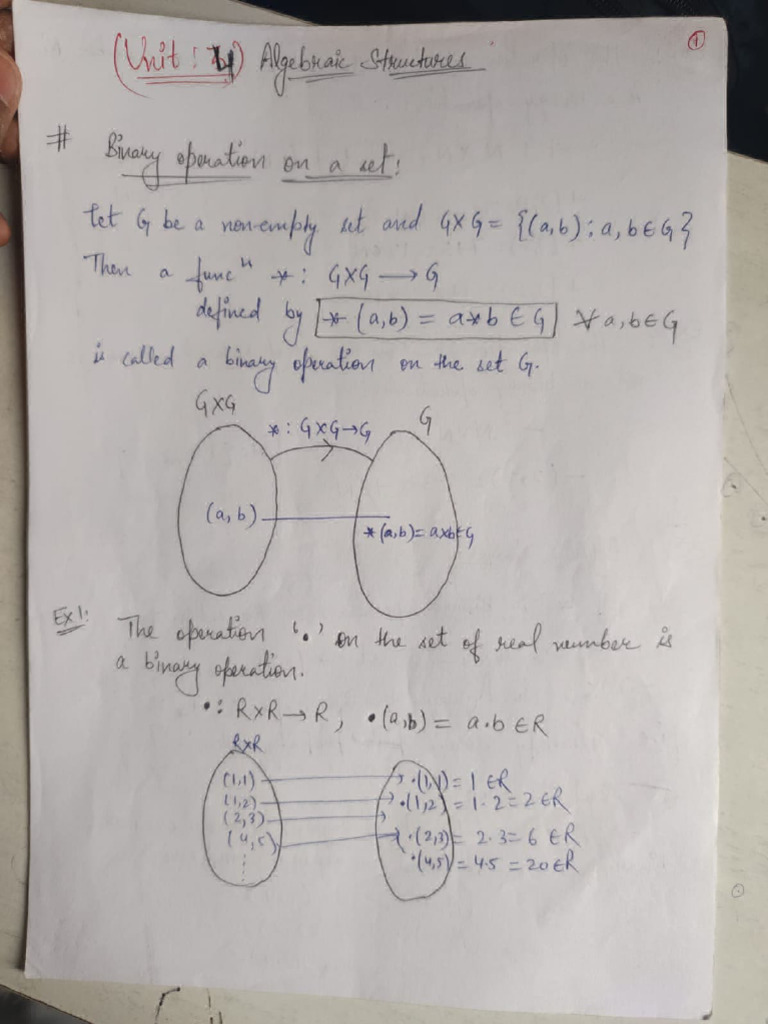 ①
(Unit : 4) Algebraic Structures
# Binary operation on a set:
Let G be a non-empty set and G×G = {(a,b) ; a, b ∈ G}
Then a funcⁿ * : G×G → G
defined by * (a,b) = a*b ∈ G ∀ a,b ∈ G
is called a binary operation on the set G.
G×G
* : G×G → G
G
(a, b)
* (a,b) = a*b ∈ G
Ex 1: The operation '•' on the set of real number is
a binary operation.
• : R×R → R, • (a,b) = a·b ∈ R
R×R
(1,1) ·(1,1) = 1 ∈ R
(1,2) ·(1,2) = 1·2 = 2 ∈ R
(2,3) ·(2,3) = 2·3 = 6 ∈ R
(4,5) ·(4,5) = 4·5 = 20 ∈ R